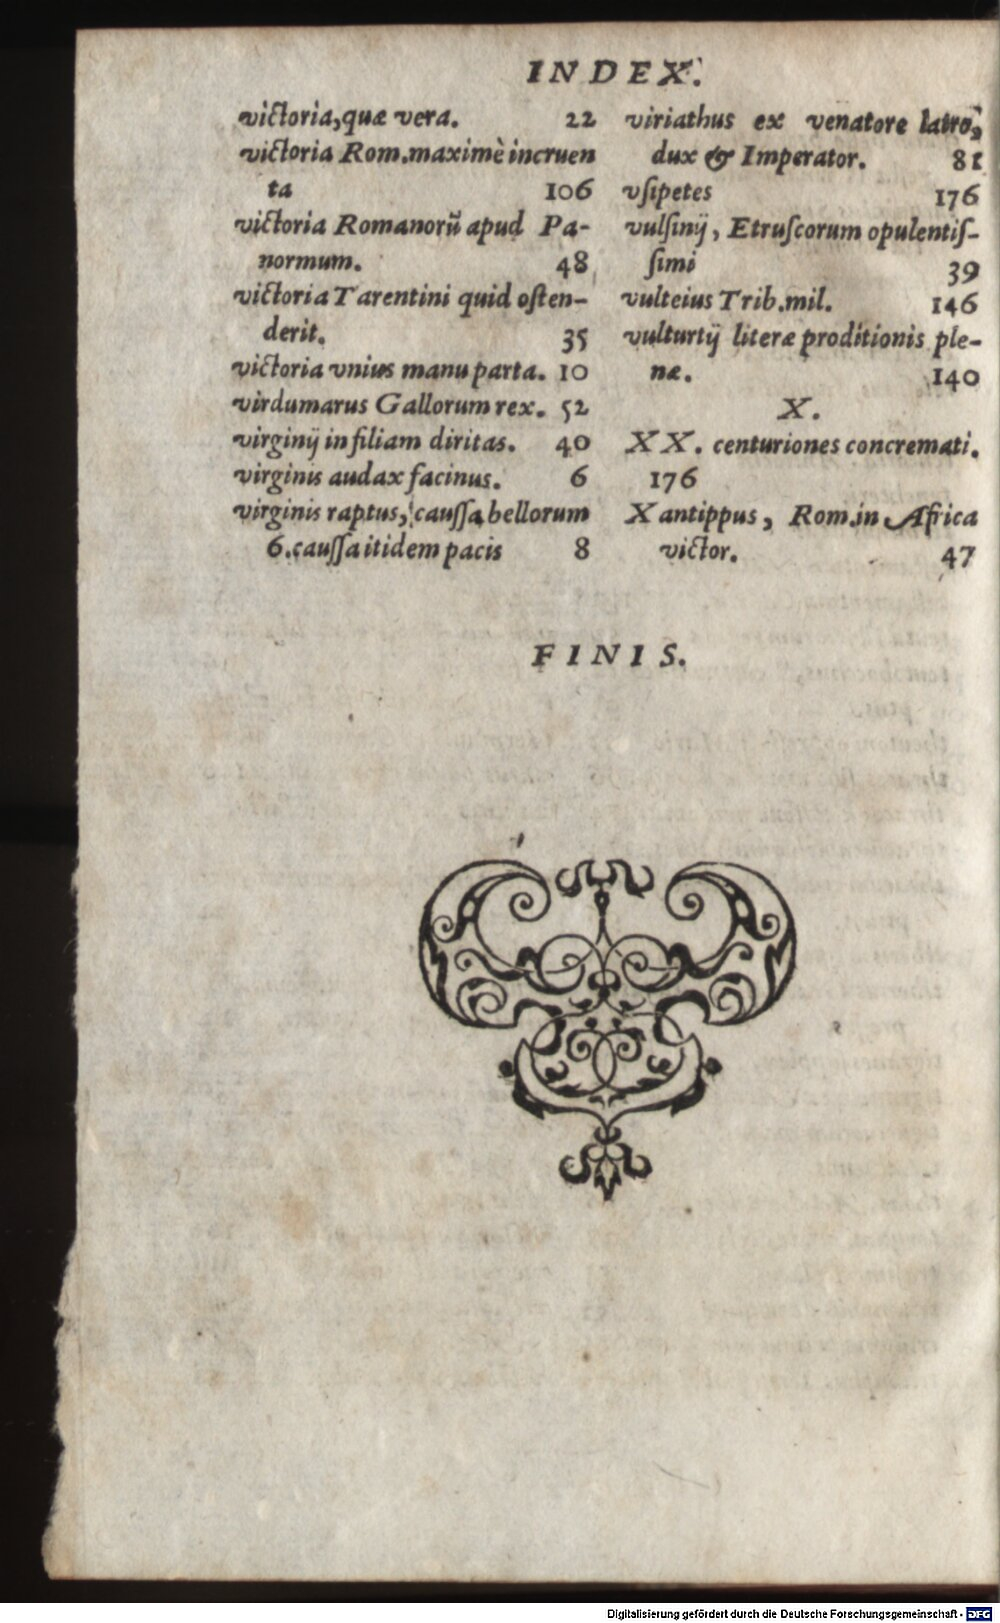 INDEX.
victoria, quæ vera. 22
victoria Rom. maximè incruen
ta 106
victoria Romanorũ apud Pa-
normum. 48
victoria Tarentini quid osten-
derit. 35
victoria vnius manu parta. 10
virdumarus Gallorum rex. 52
virginij in filiam diritas. 40
virginis audax facinus. 6
virginis raptus, caussa bellorum
6. caussa itidem pacis 8
viriathus ex venatore latro,
dux & Imperator. 81
vsipetes 176
vulsinij, Etruscorum opulentis-
simi 39
vulteius Trib. mil. 146
vulturtij literæ proditionis ple-
næ. 140
X.
XX. centuriones concremati.
176
Xantippus, Rom. in Africa
victor. 47
FINIS.
Digitalisierung gefördert durch die Deutsche Forschungsgemeinschaft - DFG